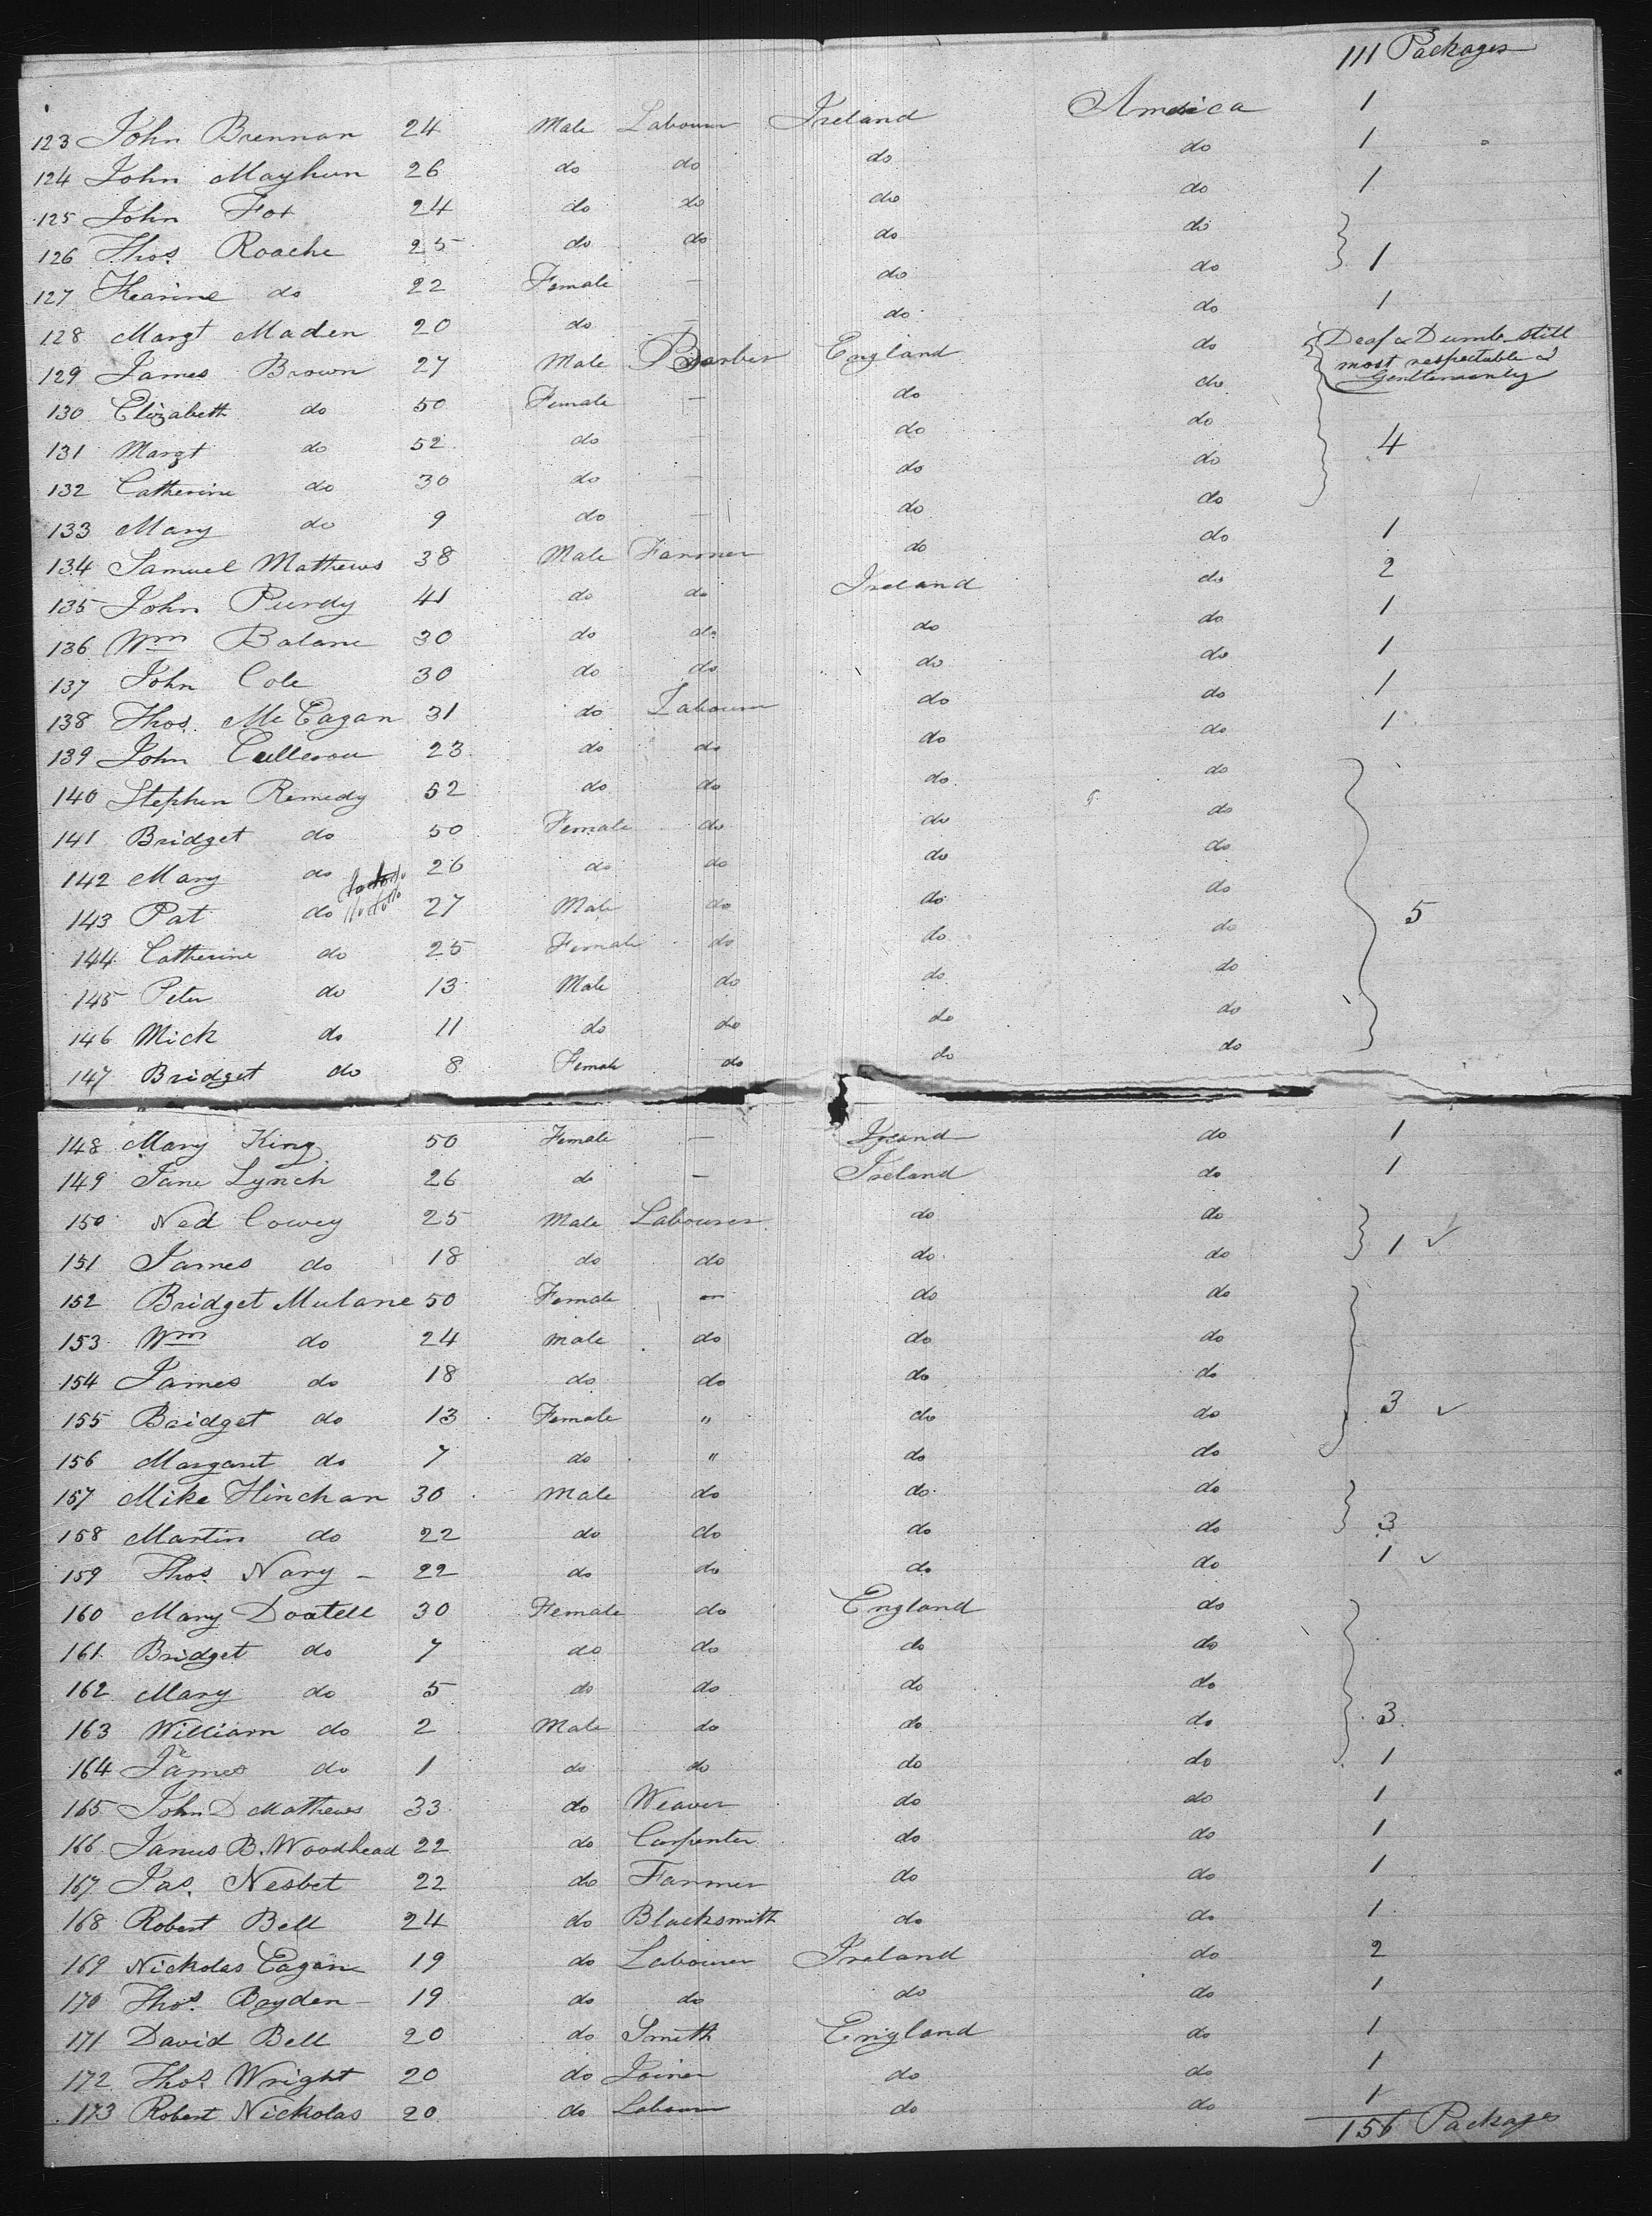 111 Packages
123 John Brennan 24 Male Labourer Ireland America 1
124 John Mayhun 26 do do do do 1
125 John Fox 24 do do do do 1
126 Thos. Roache 25 do do do do
127 do 22 Female — do do 1
128 Margt Maden 20 do — do do 1
129 James Brown 27 Male Barber England do Deaf & Dumb still
most respectable &
Gentlemanly
130 Elizabeth do 50 Female — do do
131 Margt do 52 do — do do 4
132 Catherine do 30 do — do do
133 Mary do 9 do — do do
134 Samuel Mathews 38 Male Farmer do do 1
135 John Purdy 41 do do Ireland do 2
136 Wm Balane 30 do do do do 1
137 John Cole 30 do do do do 1
138 Thos. McEagan 31 do Labourer do do 1
139 John 23 do do do do 1
140 Stephen Remedy 52 do do do do
141 Bridget do 50 Female do do do
142 Mary do 26 do do do do
143 Pat do 27 Male do do do 5
144 Catherine do 25 Female do do do
145 Peter do 13 Male do do do
146 Mick do 11 do do do do
147 Bridget do 8 Female do do do
148 Mary King 50 Female — do 1
149 Jane Lynch 26 do — Ireland do 1
150 Ned Cowey 25 Male Labourer do do
151 James do 18 do do do do 1 ✓
152 Bridget Mulane 50 Female — do do
153 Wm do 24 male do do do
154 James do 18 do do do do
155 Bridget do 13 Female " do do 3 ✓
156 Margaret do 7 do " do do
157 Mike Hinchan 30 Male do do do
158 Martin do 22 do do do do 3
159 Thos. Nary – 22 do do do do 1 ✓
160 Mary Doatell 30 Female do England do
161 Bridget do 7 do do do do
162 Mary do 5 do do do do
163 William do 2 Male do do do 3
164 James do 1 do do do do 1
165 John D Mathews 33 do Weaver do do 1
166 James B. Woodhead 22 do Carpenter do do 1
167 Jas. Nesbet 22 do Farmer do do 1
168 Robert Bell 24 do Blacksmith do do 1
169 Nickolas Eagan 19 do Labourer Ireland do 2
170 Thos. Bryden – 19 do do do do 1
171 David Bell 20 do Smith England do 1
172 Thos. Wright 20 do Joiner do do 1
173 Robert Nickolas 20 do Labourer do do 1
156 Packages